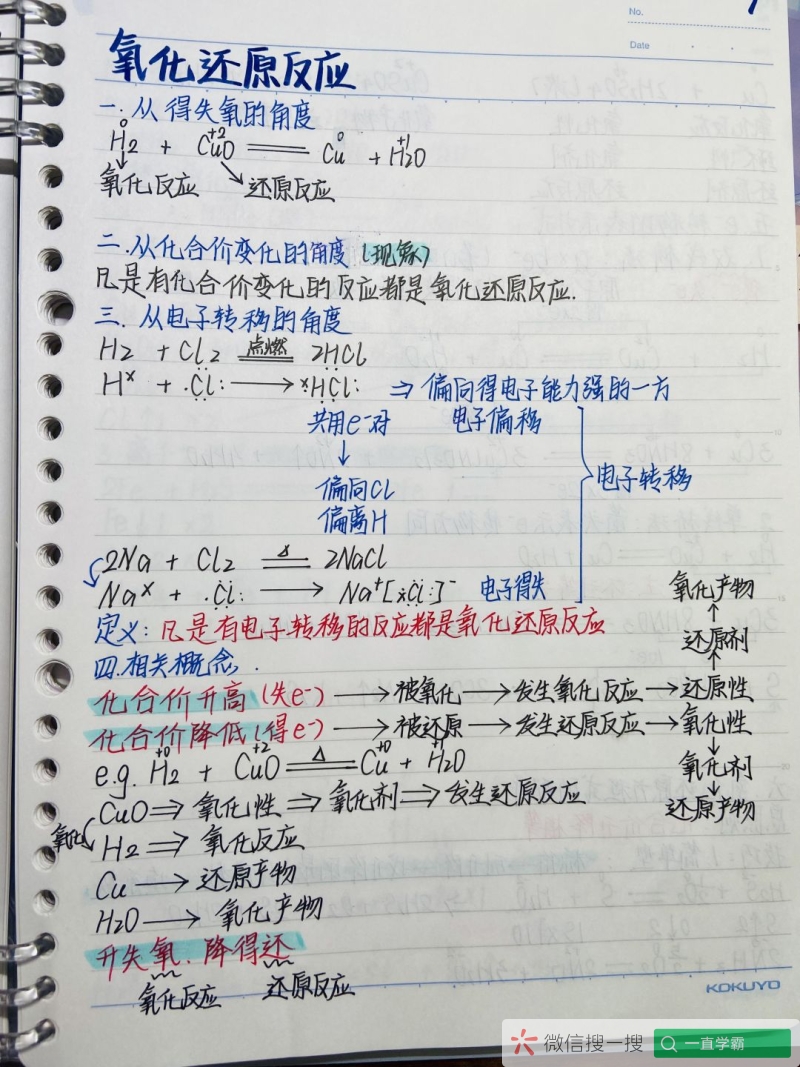 No.
Date
氧化还原反应
一.从得失氧的角度
0 +2 0 +1
H2 + CuO ═══ Cu + H2O
氧化反应 还原反应
二.从化合价变化的角度(现象)
凡是有化合价变化的反应都是氧化还原反应.
三.从电子转移的角度
点燃
H2 + Cl2 ═══ 2HCl
H× + ·Cl: → ×HCl: ⇒ 偏向得电子能力强的一方
共用e-对 电子偏移
↓
偏向Cl 电子转移
偏离H
2Na + Cl2 ═△═ 2NaCl
Na× + ·Cl: → Na+[×Cl:]- 电子得失
氧化产物
↑
定义:凡是有电子转移的反应都是氧化还原反应
还原剂
↑
四.相关概念.
化合价升高(失e-) → 被氧化 → 发生氧化反应 → 还原性
化合价降低(得e-) → 被还原 → 发生还原反应 → 氧化性
↓
+0 +2 +0 +1
e.g. H2 + CuO ═△═ Cu + H2O
氧化剂
↓
CuO ⇒ 氧化性 ⇒ 氧化剂 ⇒ 发生还原反应
还原产物
氧化 H2 ⇒ 氧化反应
Cu → 还原产物
H2O → 氧化产物
升失氧.降得还
氧化反应 还原反应
KOKUYO
微信搜一搜 一直学霸